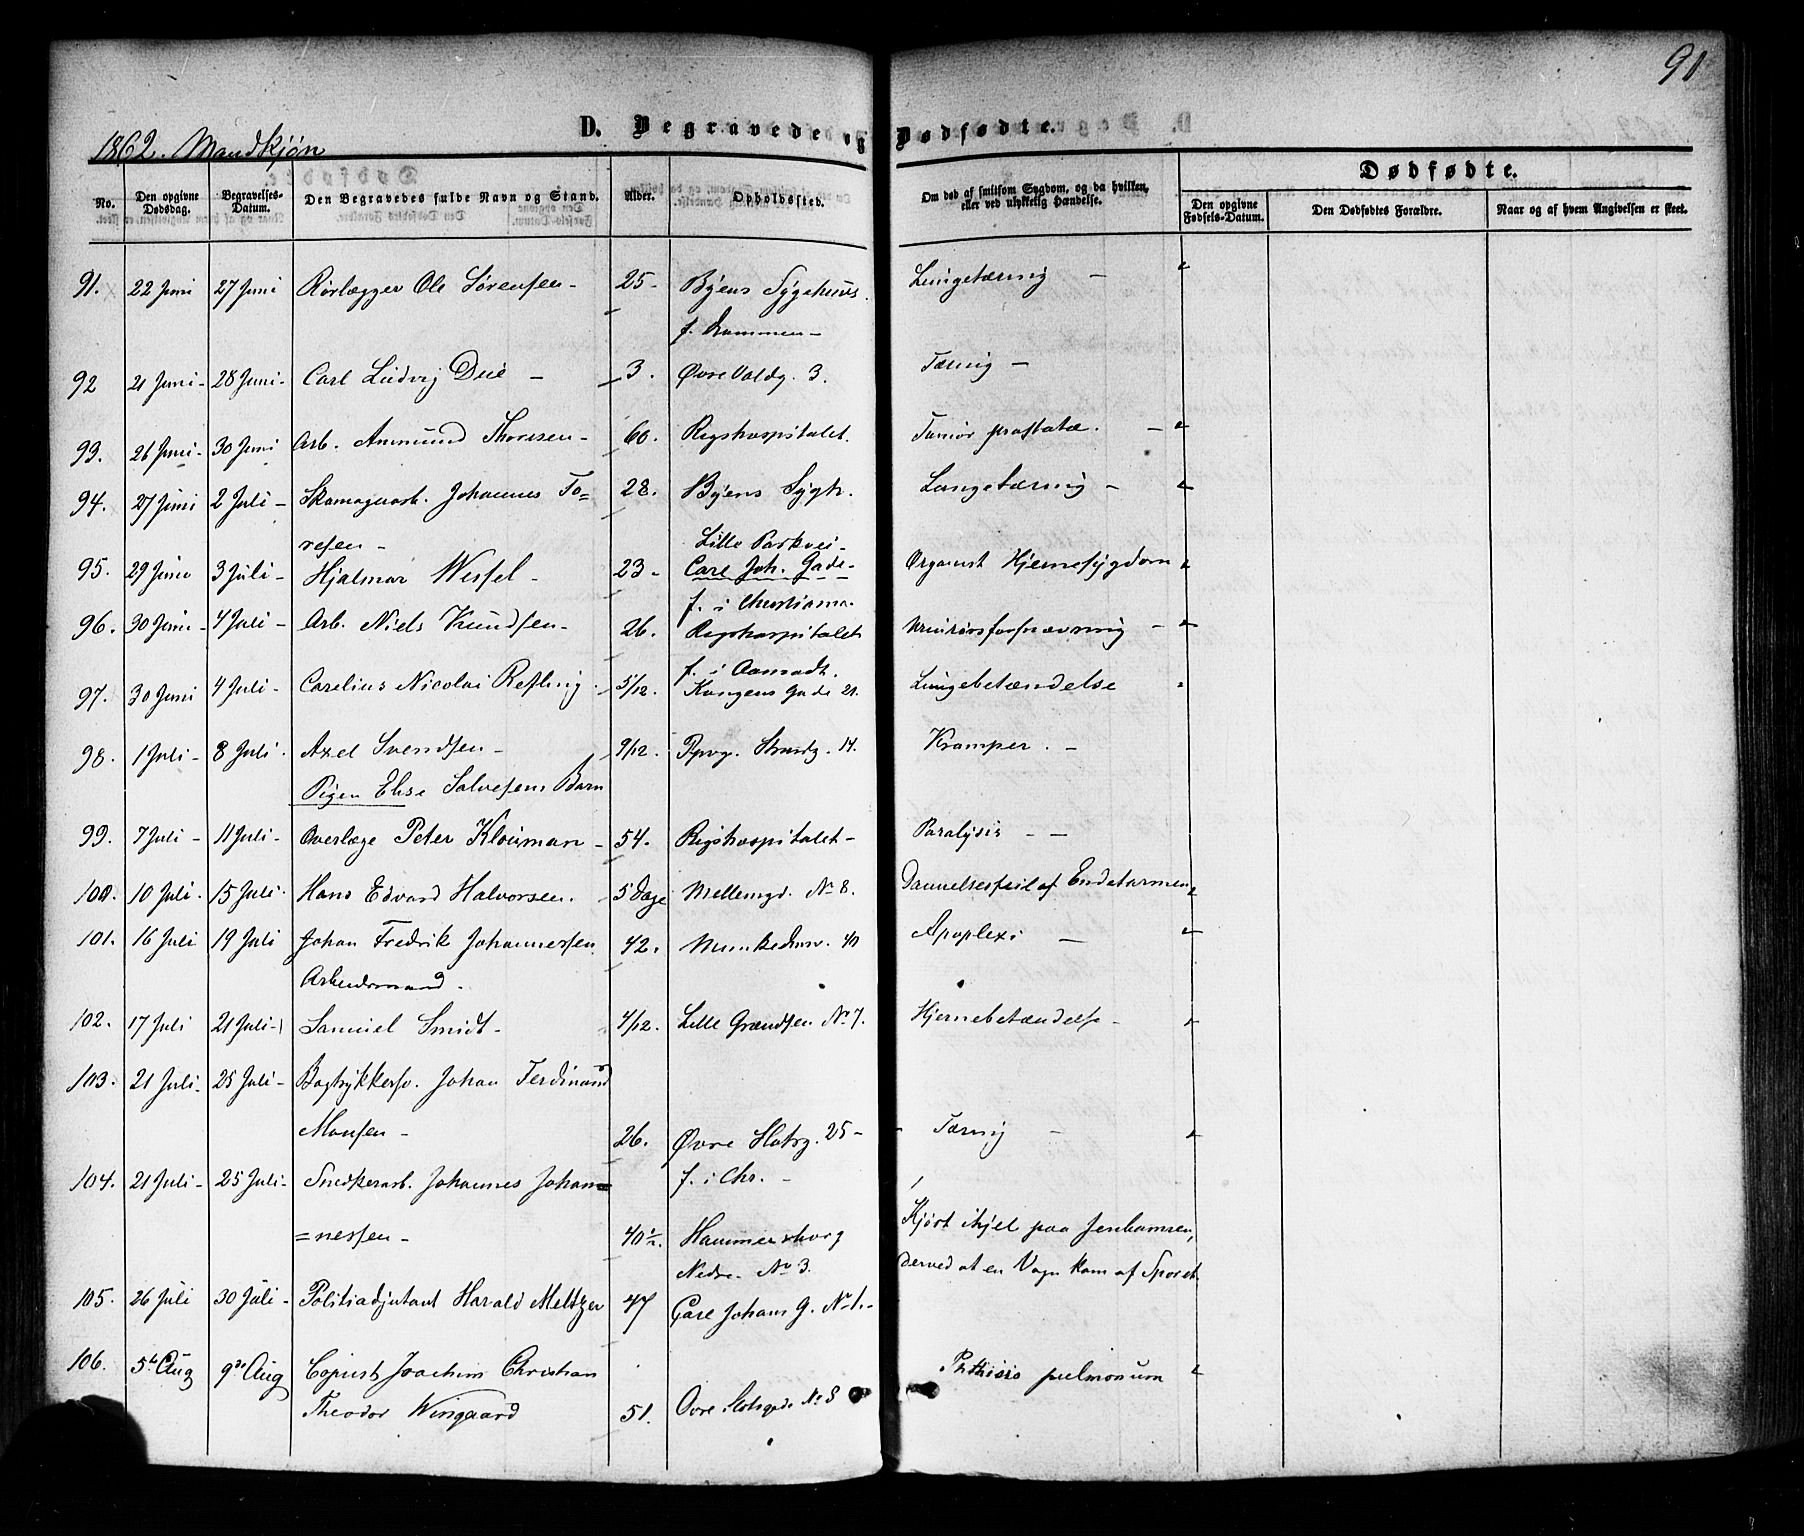 91
1862. Mandkjøn
D. Begravede og Dødfødte.
Dødfødte.
No.
Den opgivne Dødsdag.
Begravelses-Datum.
Den Begravedes fulde Navn og Stand.
Alder.
Opholdssted.
Om død af smitsom Sygdom, og da hvilken, eller ved ulykkelig Hændelse.
Den opgivne Fødsels-Datum.
Den Dødfødtes Forældre.
Naar og af hvem Angivelsen er skeet.
91. 22 Juni 27 Juni Rørlægger Ole Sørensen - 25 - Byens Sygehuus. Lungetæring -
f. Drammen -
92 21 Juni - 28 Juni - Carl Ludvig Due - 3. Øvre Voldg. 3. Tæring -
93. 26 Juni - 30 Juni Arb. Ammund Thoresen - 60. Rigshospitalet. Tumor prostatæ. -
94. 27 Juni 2 Juli - Skomagerarb. Johannes To= 28. Byens Sygh. Lungetæring -
resen - Lille Parkvei -
95. 29 Juni 3 Juli - Hjalmar Wessel - 23 - Carl Joh. Gade - Organisk Hjernesygdom
f. i Christiania.
96. 30 Juni - 4 Juli - Arb. Niels Knudsen - 26. Rigshospitalet Urinrørsforsnævring -
f. i Aamodt.
97. 30 Juni 4 Juli - Carelius Nicolai Refling. 5/12. Kongens Gade 21. Lungebetændelse
98. 1 Juli - 8 Juli. Axel Svendsen - 9/12. Pipvg. Strandg. 14. Kramper. -
Pigen Elise Salvesens Barn
99. 7 Juli - 11 Juli - Overlæge Peter Klouman - 54. Rigshospitalet - Paralysis - -
100. 10 Juli. 15 Juli. Hans Edvard Halvorsen. 5 Dage Mellemgd. No 8. Dannelsesfeil af Endetarmen
101. 16 Juli 19 Juli Johan Fredrik Johannessen 42. Munkedmv. 40 Apoplexi -
Arbeidsmand.
102. 17 Juli 21 Juli - Samuel Smidt - 4/12. Lille Grændsen No 7. Hjernebetændelse -
103. 21 Juli - 25 Juli - Bogtrykkersv. Johan Ferdinand
Monsen - 26. Øvre Slotsg. 25 - Tæring -
104. 21 Juli - 25 Juli - Snedkerarb. Johannes Johan f. i Chr. -
=nessen - 40 1/2. Hammersborg Kjørt ihjel paa Jernbanen,
Nedre. No 3. derved at en Vogn kom af Sporet.
105. 26 Juli 30 Juli - Politiadjutant Harald Meltzer 47 Carl Johans G. No 1. -
106. 5te Aug 9de Aug Copiist Joachim Christian Phthisis pulmonum
Theodor Wingaard 51. Ovre Slotsgade No 8